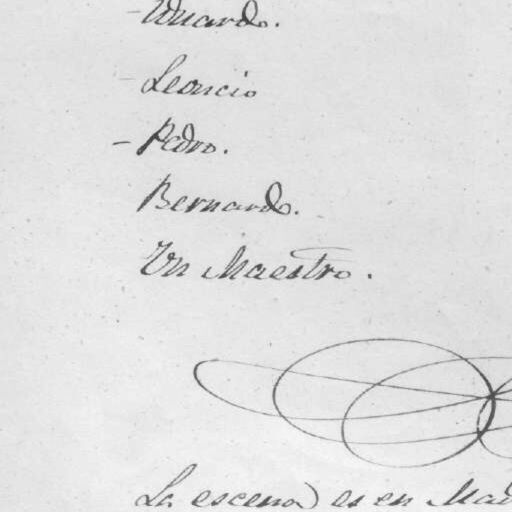 - Eduardo.
- Leoncio
- Pedro.
Bernardo.
Un Maestro.
La escena es en Mad